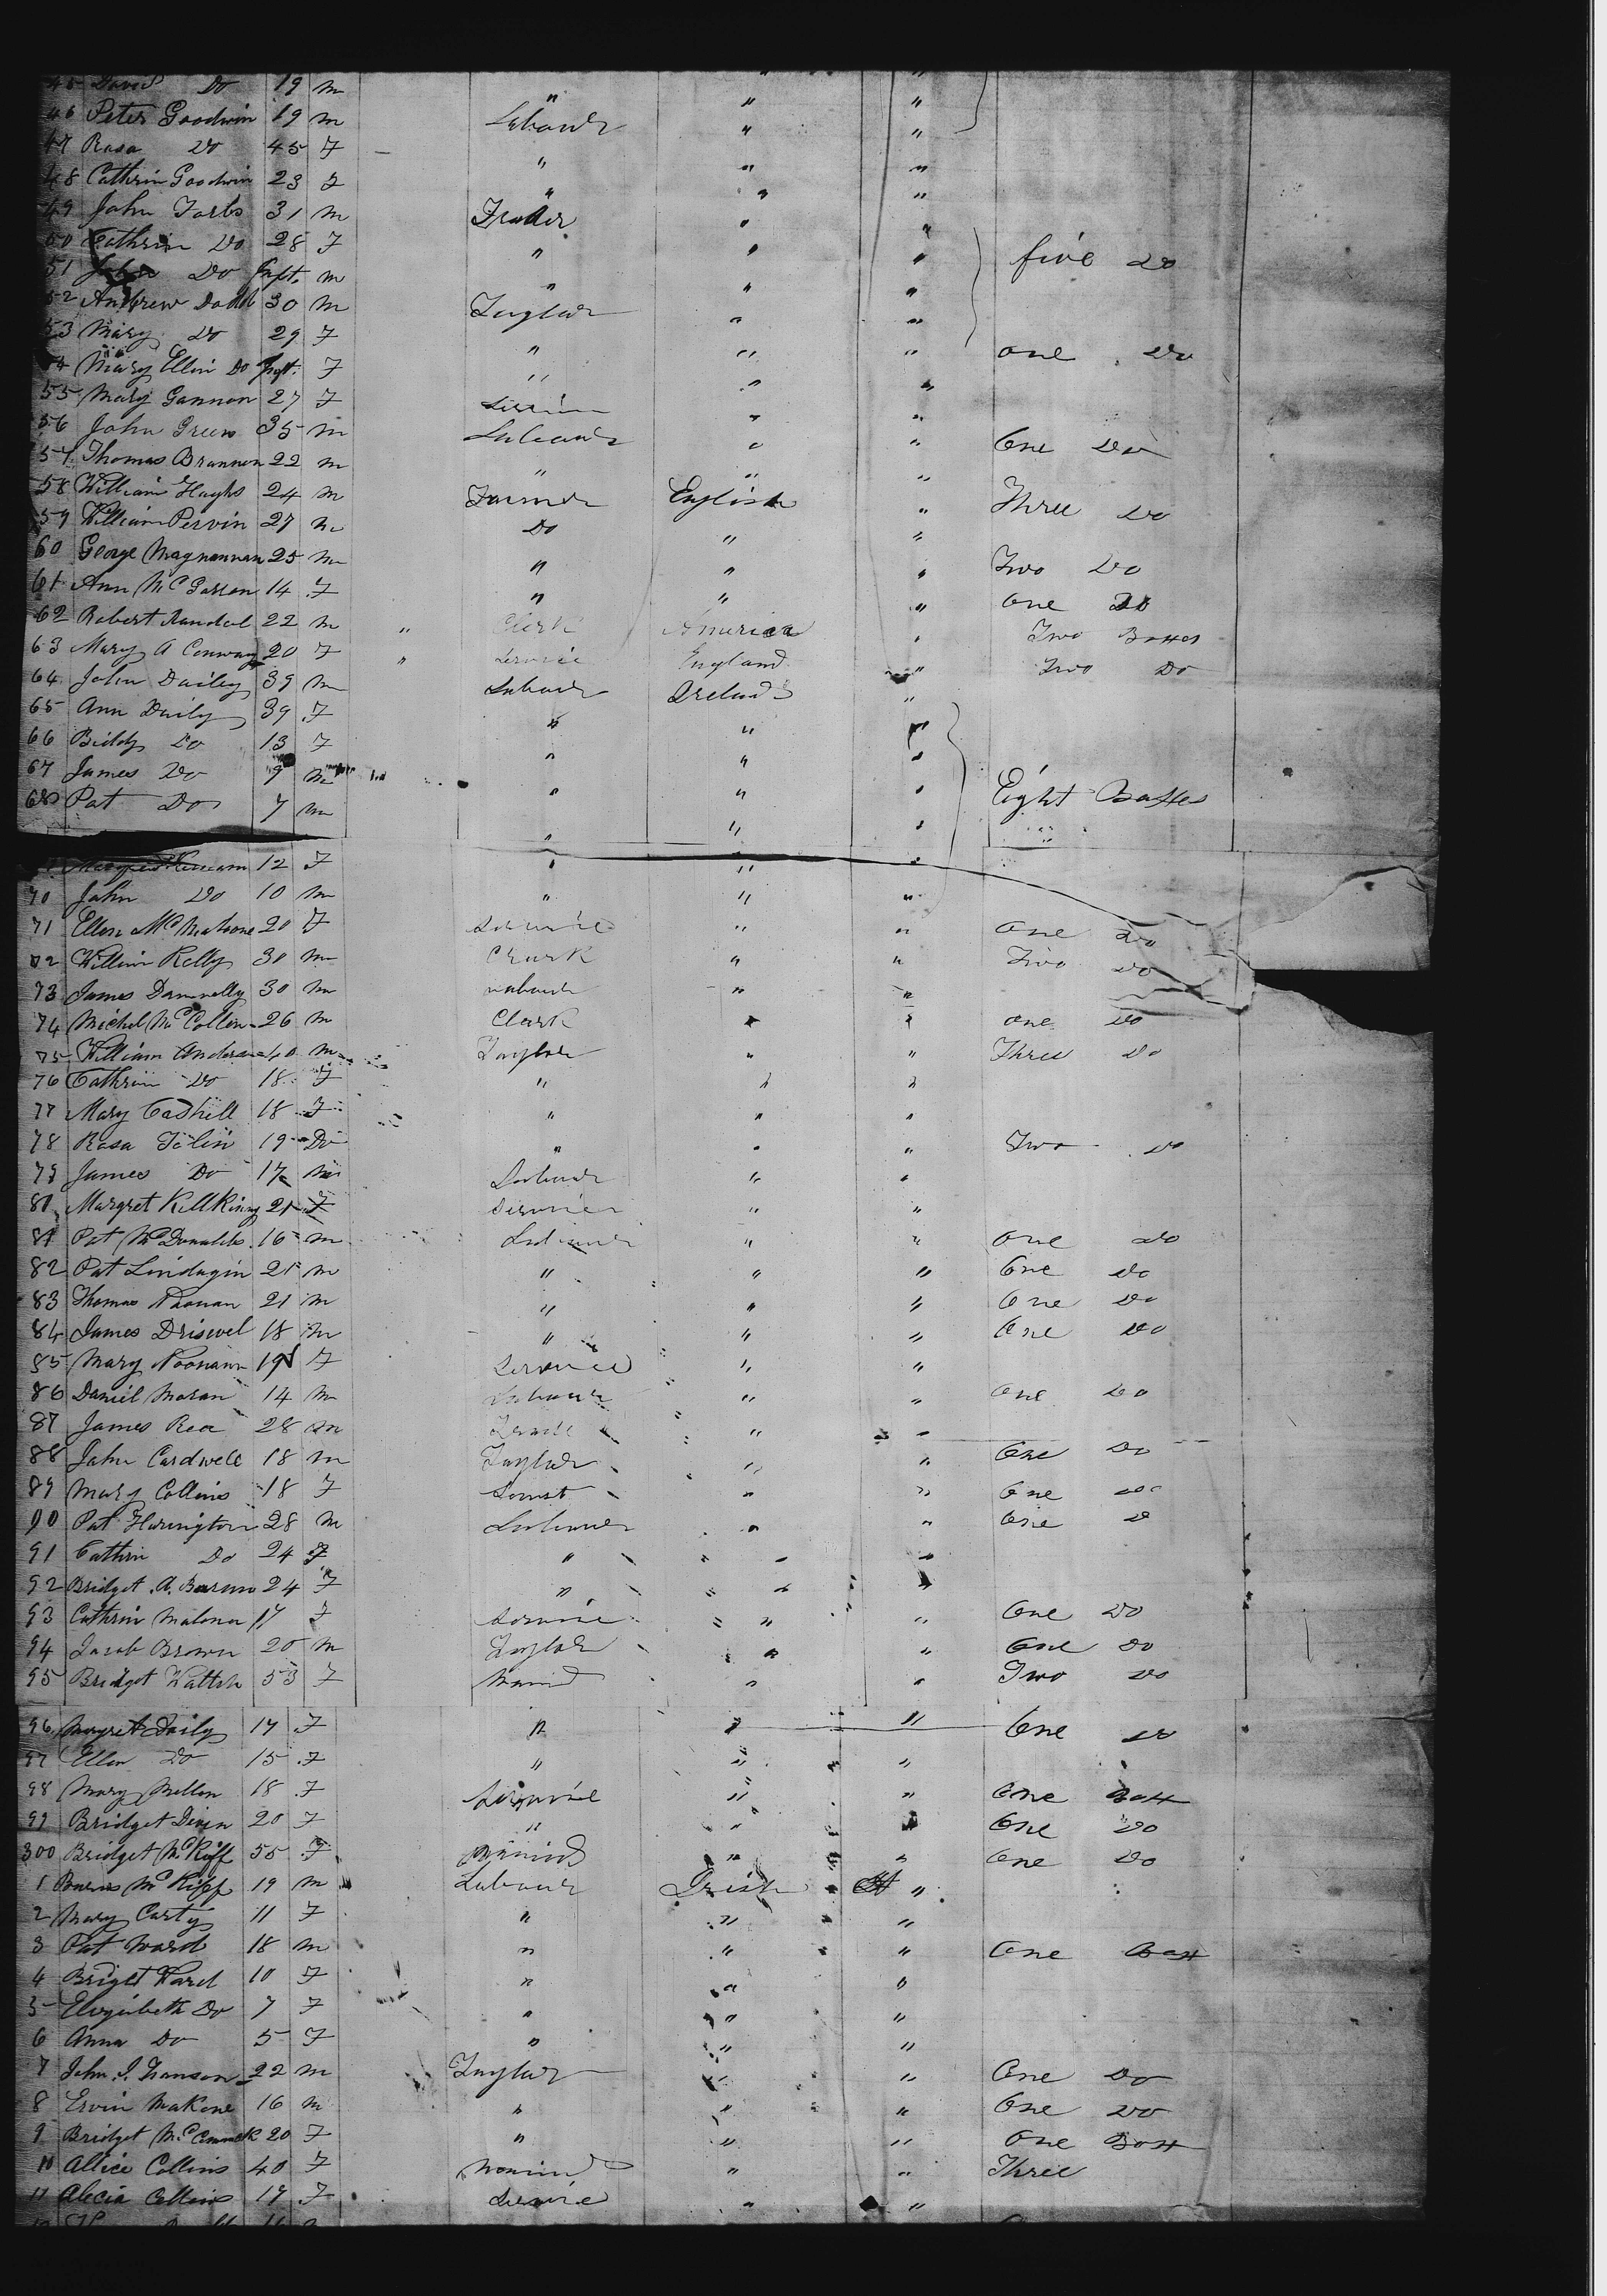 45 David Do 19 m " " "
46 Peter Goodwin 19 m Labour " "
47 Rosa Do 45 F " " "
48 Cathrin Goodwin 23 F " " "
49 John Forbs 31 m Trader " "
50 Cathrin Do 28 F " " " five Do
51 John Do Inft. m " " "
52 Andrew Dodd 30 m Taylor " "
53 Mary Do 29 F " " " one Do
54 Mary Ellin Do Inft. F " " "
55 Mary Gannon 27 F " "
56 John Green 35 m Labour " " One Do
57 Thomas Brannon 22 m " " "
58 William Hughs 24 m Farmer English " Three Do
59 William Pervin 27 m Do " "
60 George Magnannan 25 m " " " Two Do
61 Ann 14 F " " " One Do
62 Robert Randel 22 m " Clerk America " Two Boxes
63 Mary A Conway 20 F " Service England " Two Do
64 John Dailey 39 m Labour Ireland "
65 Ann Daily 39 F " " "
66 Biddy Do 13 F " " "
67 James Do 9 m " " " Eight Boxes
68 Pat Do 7 m " " "
12 F " " "
70 John Do 10 m " " "
71 Ellen McMahone 20 F Service " " One Do
72 William Kelly 30 m Clark " " Two Do
73 James Donnelly 30 m Labour " "
74 Michel McCollin 26 m Clark " " One Do
75 William 40 m Taylor " " Three Do
76 Cathrin Do 18 F " " "
77 Mary Cadhill 18 F " " "
78 Rosa Tolin 19 Do " " " Two Do
79 James Do 17 m Labour " "
80 Margret Killkinny 21 F Service " "
81 Pat McDonalds 16 m Labour " " One Do
82 Pat Lindagin 21 m " " " One Do
83 Thomas Noonan 21 m " " " One Do
84 James Driswel 18 m " " " One Do
85 Mary Noonann 19 F Service " "
86 Daniel Moran 14 m Labour " " One Do
87 James Rea 28 m " "
88 John Cardwell 18 m Taylor " " One Do
89 Mary Collins 18 F " " One Do
90 Pat Harington 28 m Labour " " One Do
91 Cathrin Do 24 F " " "
92 Bridget A. 24 F " " "
93 Cathrin Malona 17 F Service " " One Do
94 Jacob Brown 20 m Taylor " " One Do
95 Bridget 53 F " " Two Do
96 Margret Daily 17 F " " " One Do
97 Ellen Do 15 F " " "
98 Mary Mellon 18 F Service " " One Box
99 Bridget Divin 20 F " " " One Do
300 Bridget McKiff 55 F " " One Do
1 McKiff 19 m Labour Irish "
2 Mary Carty 11 F " " "
3 Pat Ward 18 m " " " One Box
4 Bridget Ward 10 F " " "
5 Elizabeth Do 7 F " " "
6 Anna Do 5 F " " "
7 John J. Hanson 22 m Taylor " " One Do
8 Ervin Makone 16 m " " " One Do
9 Bridget McCormack 20 F " " " One Box
10 Allice Collins 40 F " " Three
11 Alecia Collins 17 F Service " "